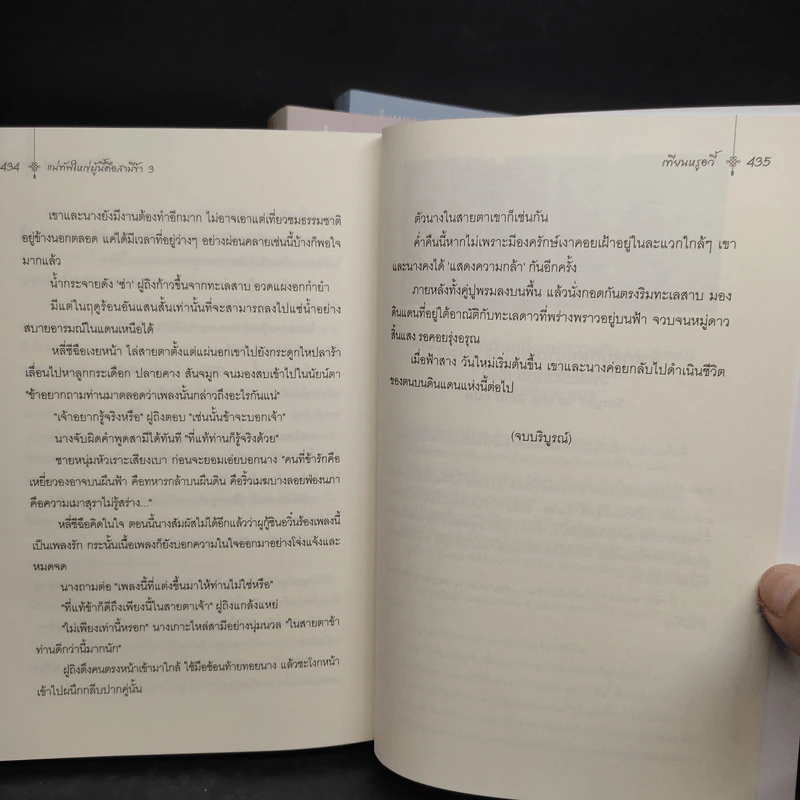 434 แม่ทัพใหญ่ผู้นี้คือสามีข้า 3
เขาและนางยังมีงานต้องทำอีกมาก ไม่อาจเอาแต่เที่ยวชมธรรมชาติ
อยู่ข้างนอกตลอด แค่ได้มีเวลาที่อยู่ว่างๆ อย่างผ่อนคลายเช่นนี้บ้างก็พอใจ
มากแล้ว
น้ำกระจายดัง 'ซ่า' ผู่ถิงก้าวขึ้นจากทะเลสาบ อวดแผงอกกำยำ
มีแต่ในฤดูร้อนอันแสนสั้นเท่านั้นที่จะสามารถลงไปแช่น้ำอย่าง
สบายอารมณ์ในแดนเหนือได้
หลี่ชีฉือเงยหน้า ไล่สายตาตั้งแต่แผ่นอกเขาไปยังกระดูกไหปลาร้า
เลื่อนไปหาลูกกระเดือก ปลายคาง สันจมูก จนมองสบเข้าไปในนัยน์ตา
"ข้าอยากถามท่านมาตลอดว่าเพลงนั้นกล่าวถึงอะไรกันแน่"
"เจ้าอยากรู้จริงหรือ" ผู่ถิงตอบ "เช่นนั้นข้าจะบอกเจ้า"
นางจับผิดคำพูดสามีได้ทันที "ที่แท้ท่านก็รู้จริงด้วย"
ชายหนุ่มหัวเราะเสียงเบา ก่อนจะยอมเอ่ยบอกนาง "คนที่ข้ารักคือ
เหยี่ยวองอาจบนผืนฟ้า คือทหารกล้าบนผืนดิน คือริ้วเมฆบางลอยฟ่องนภา
คือความเมาสุราไม่รู้สร่าง..."
หลี่ชีฉือคิดในใจ ตอนนี้นางสัมผัสไม่ได้อีกแล้วว่าผูกู้ซินอวิ๋นร้องเพลงนี้
เป็นเพลงรัก กระนั้นเนื้อเพลงก็ยังบอกความในใจออกมาอย่างโจ่งแจ้งและ
หมดจด
นางถามต่อ "เพลงนี้ที่แต่งขึ้นมาให้ท่านไม่ใช่หรือ"
"ที่แท้ข้าก็ดีถึงเพียงนี้ในสายตาเจ้า" ผู่ถิงแกล้งแหย่
"ไม่เพียงเท่านี้หรอก" นางเกาะไหล่สามีอย่างนุ่มนวล "ในสายตาข้า
ท่านดีกว่านี้มากนัก"
ผู่ถิงดึงคนตรงหน้าเข้ามาใกล้ ใช้มือช้อนท้ายทอยนาง แล้วชะโงกหน้า
เข้าไปผนึกกลีบปากคู่นั้น
เทียนหรูอวี้ 435
ตัวนางในสายตาเขาก็เช่นกัน
ค่ำคืนนี้หากไม่เพราะมีองครักษ์เงาคอยเฝ้าอยู่ในละแวกใกล้ๆ เขา
และนางคงได้ 'แสดงความกล้า' กันอีกครั้ง
ภายหลังทั้งคู่ปูพรมลงบนพื้น แล้วนั่งกอดกันตรงริมทะเลสาบ มอง
ดินแดนที่อยู่ใต้อาณัติกับทะเลดาวที่พร่างพราวอยู่บนฟ้า จวบจนหมู่ดาว
สิ้นแสง รอคอยรุ่งอรุณ
เมื่อฟ้าสาง วันใหม่เริ่มต้นขึ้น เขาและนางค่อยกลับไปดำเนินชีวิต
ของตนบนดินแดนแห่งนี้ต่อไป
(จบบริบูรณ์)